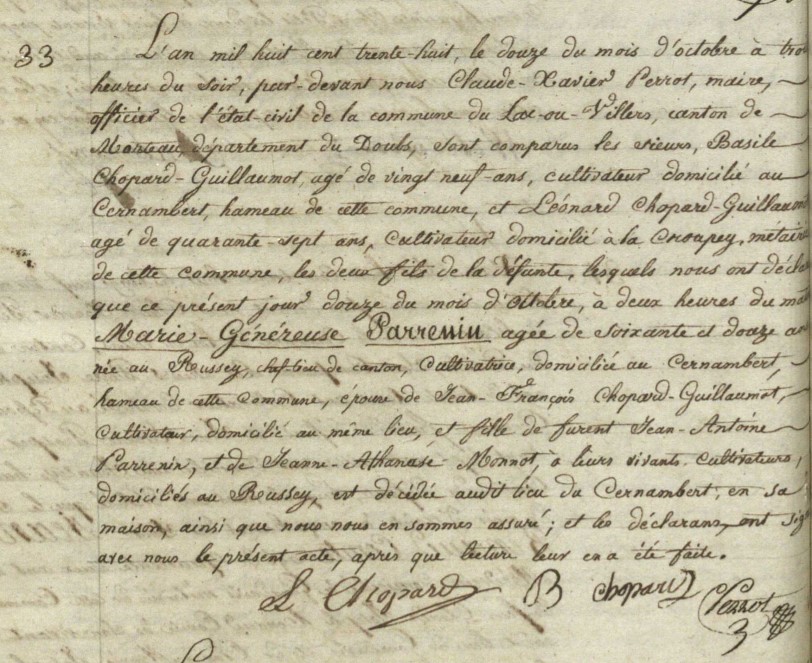 33
L'an mil huit cent trente-huit, le douze du mois d'octobre à tro
heures du soir, par-devant nous Claude-Xavier Perrot, maire,
officier de l'état-civil de la commune du Lac-ou-Villers, canton de
Morteau, département du Doubs, sont comparus les sieurs, Basile
Chopard-Guillaumot, agé de vingt neuf-ans, cultivateur domicilié au
Cernambert, hameau de cette commune, et Léonard Chopard-Guillaumo
agé de quarante-sept ans, cultivateur domicilié à la métairi
de cette commune, les deux fils de la défunte, lesquels nous ont décla
que ce présent jour douze du mois d'octobre, à deux heures du ma
Marie-Généreuse Parrenin agée de soixante et douze an
née au Russey, chef-lieu de canton, cultivatrice, domiciliée au Cernambert,
hameau de cette commune, épouse de Jean-François Chopard-Guillaumot,
cultivateur, domicilié au même lieu, et fille de furent Jean-Antoine
Parrenin, et de Jeanne-Athanase Monnot, à leurs vivants cultivateurs,
domiciliés au Russey, est décédée audit lieu du Cernambert, en sa
maison, ainsi que nous nous en sommes assuré; et les déclarans, ont sig
avec nous le présent acte, après que lecture leur en a été faite.
L Chopard B Chopard Perrot